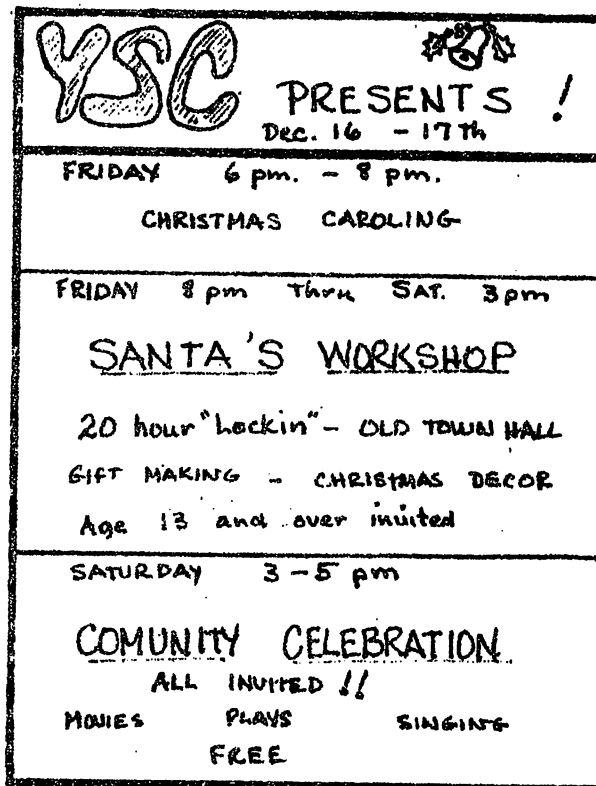 YSC
PRESENTS !
Dec. 16 - 17th
FRIDAY 6 pm. - 8 pm.
CHRISTMAS CAROLING
FRIDAY 8 pm thru SAT. 3pm
SANTA'S WORKSHOP
20 hour "Lockin" - OLD TOWN HALL
GIFT MAKING - CHRISTMAS DECOR
Age 13 and over invited
SATURDAY 3-5 pm
COMUNITY CELEBRATION
ALL INVITED !!
MOVIES PLAYS SINGING
FREE